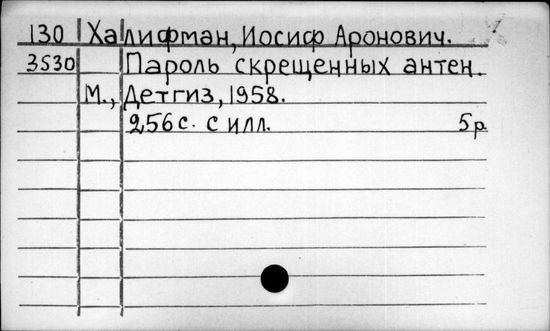 130 Халифман, Иосиф Аронович.
3530 Пароль скрещенных антен.
М., Детгиз, 1958.
256 с. с илл. 5 р.